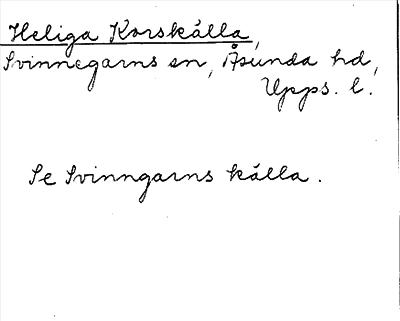 Heliga Korskälla,
Svinnegarns sn, Åsunda hd,
Upps. l.
Se Svinngarns källa.